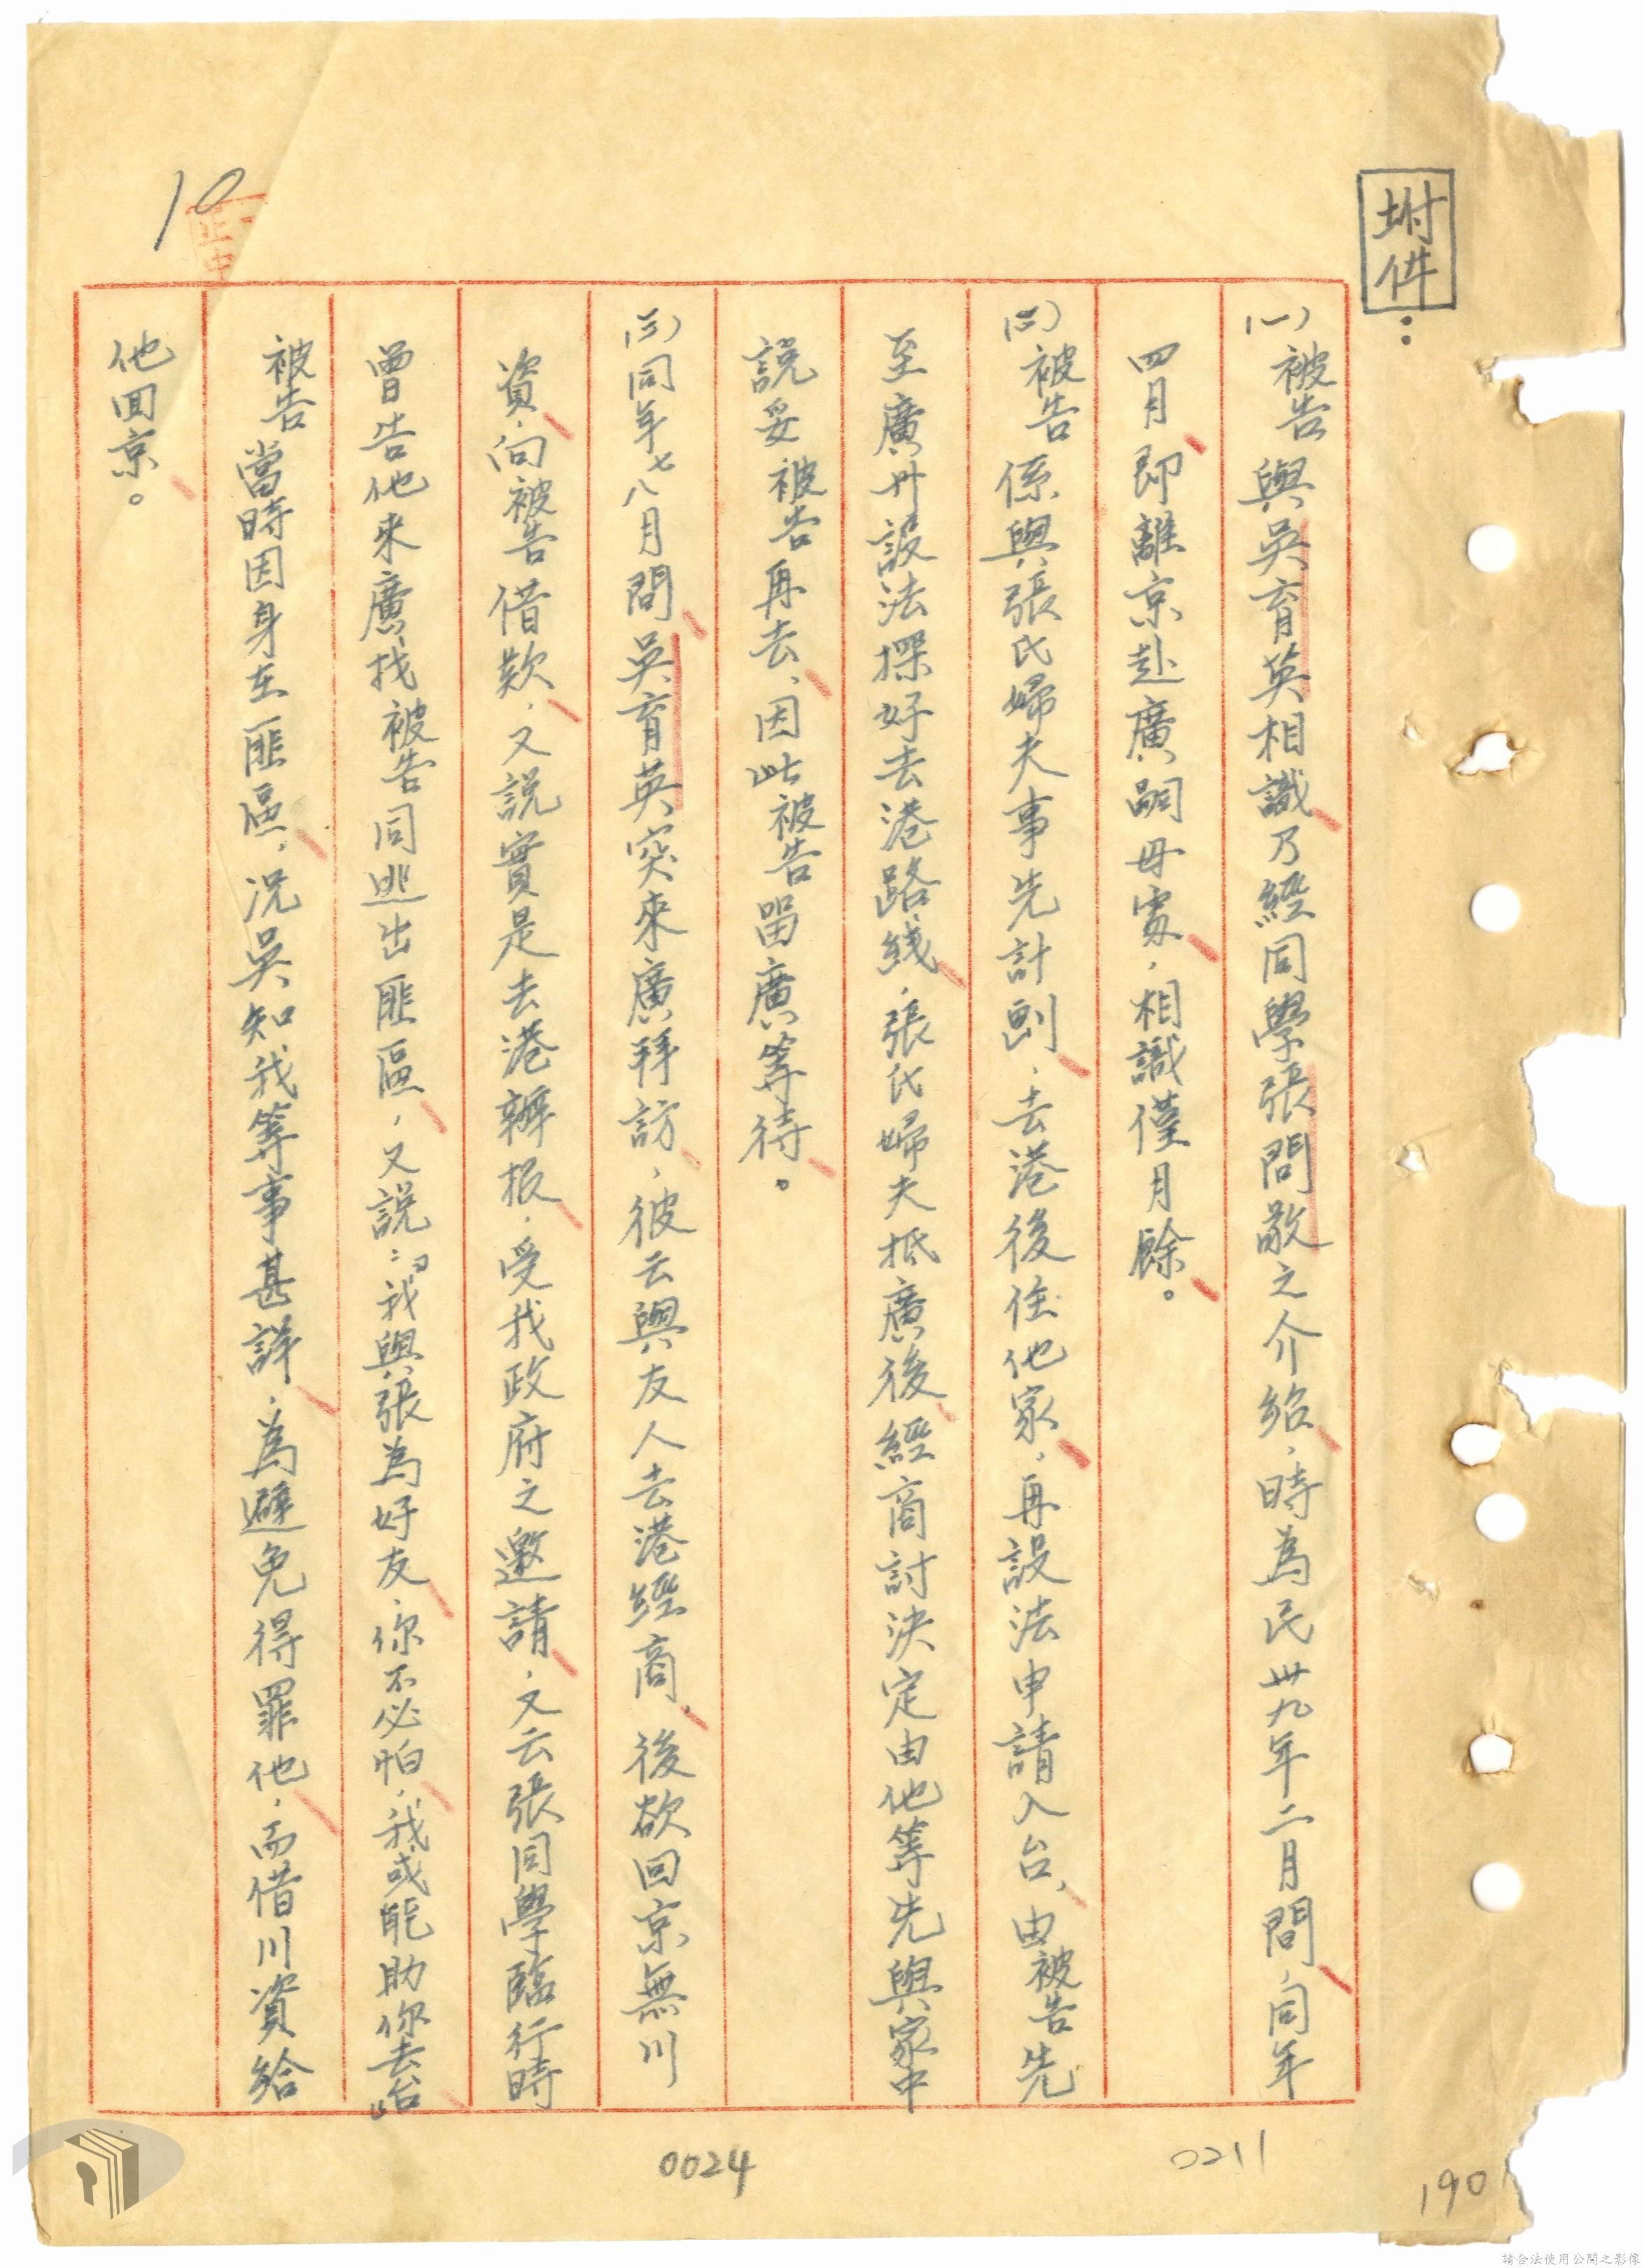 坿件：
(一)被告與吳育英相識乃經同學張問敭之介紹，時為民卅九年二月間，同年
四月即離京赴廣嗣母處，相識僅月餘。
(二)被告係與張氏婦夫事先計劃，去港後住他家，再設法申請入台，由被告先
至廣州設法探好去港路綫，張氏婦夫抵廣後經商討決定由他等先與家中
說妥被告再去，因此被告留廣等待。
(三)同年七八月間吳育英突來廣拜訪，彼云與友人去港經商，後欲回京無川
資，向被告借欵，又說實是去港辦报，受我政府之邀請，又云張同學臨行時
曾告他來廣找被告同逃出匪區，又說：「我與張為好友，你不必怕，我或能助你去台」
被告當時因身在匪區，況吳知我等事甚詳，為避免得罪他，而借川資給
他回京。
10
0024
0211
190
請合法使用公開之影像